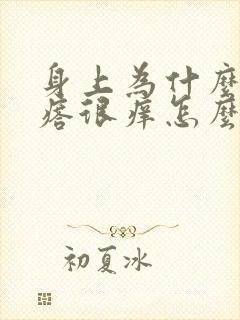 身上為什麼
痞很癢怎麼
初夏冰